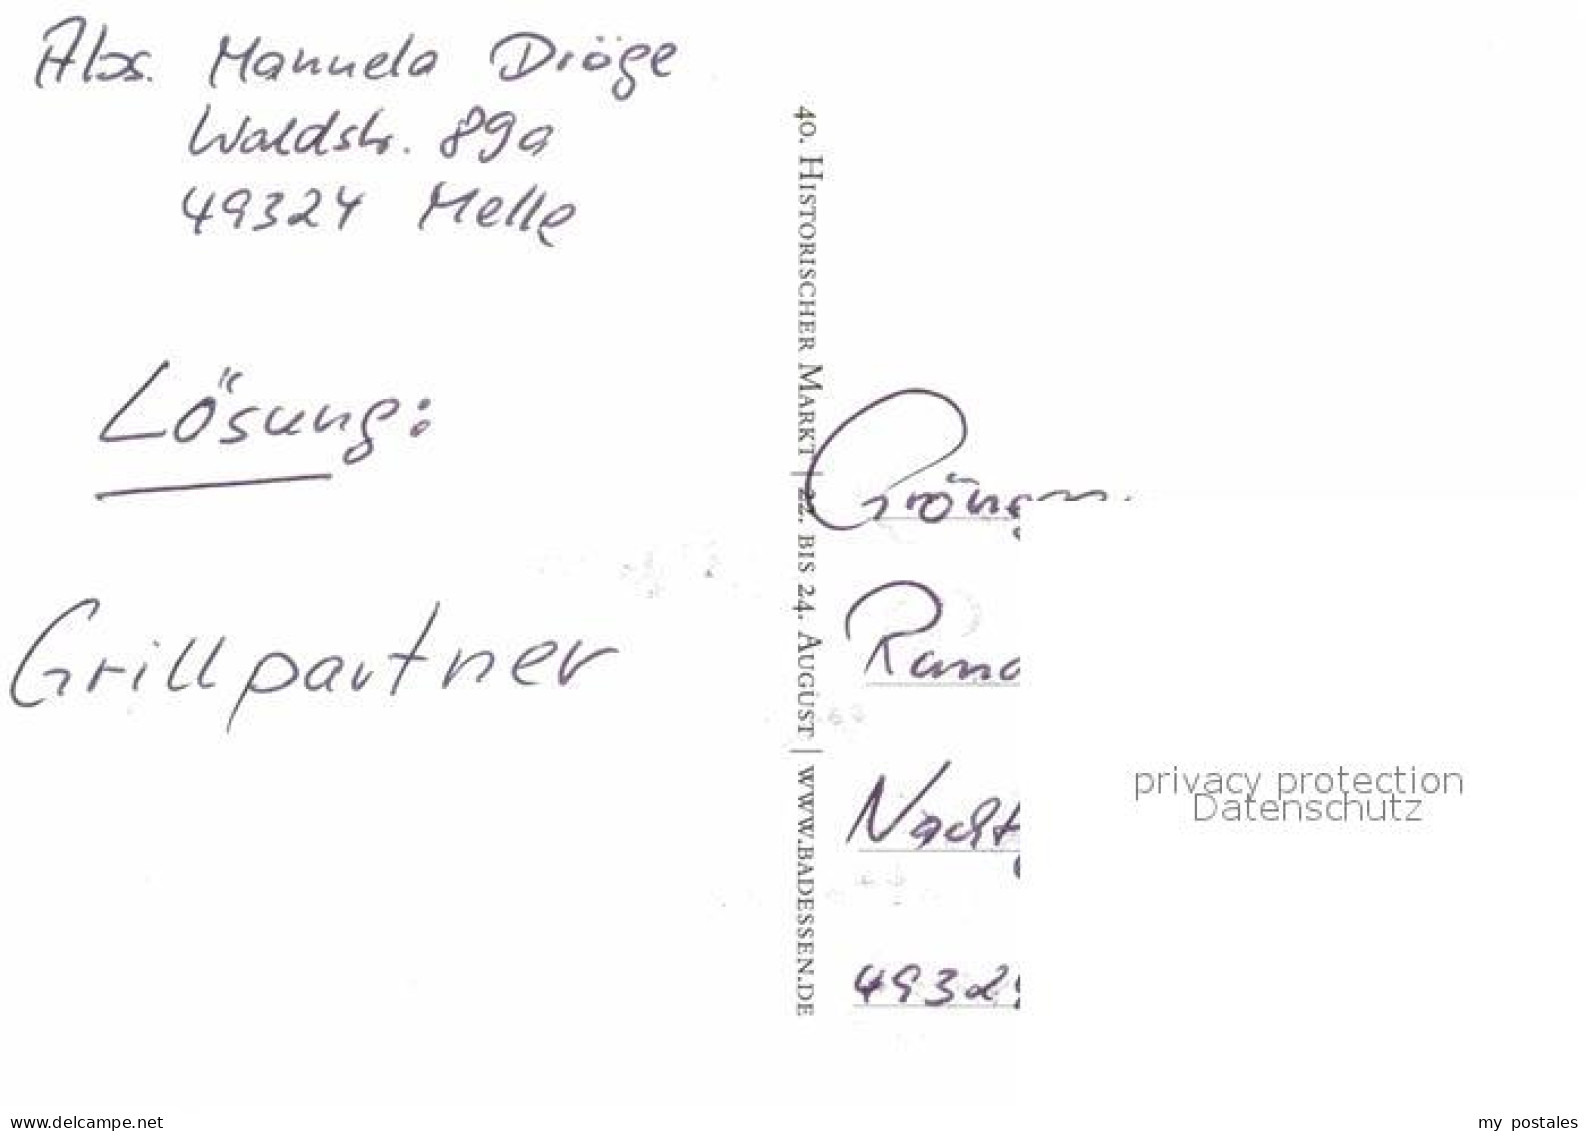 Abs. Manuela Dröge
Waldstr. 89a
49324 Melle
Lösung:
Grillpartner
40. Historischer Markt | 22. bis 24. August | www.badessen.de
49324
privacy protection
Datenschutz
www.delcampe.net
my_postales